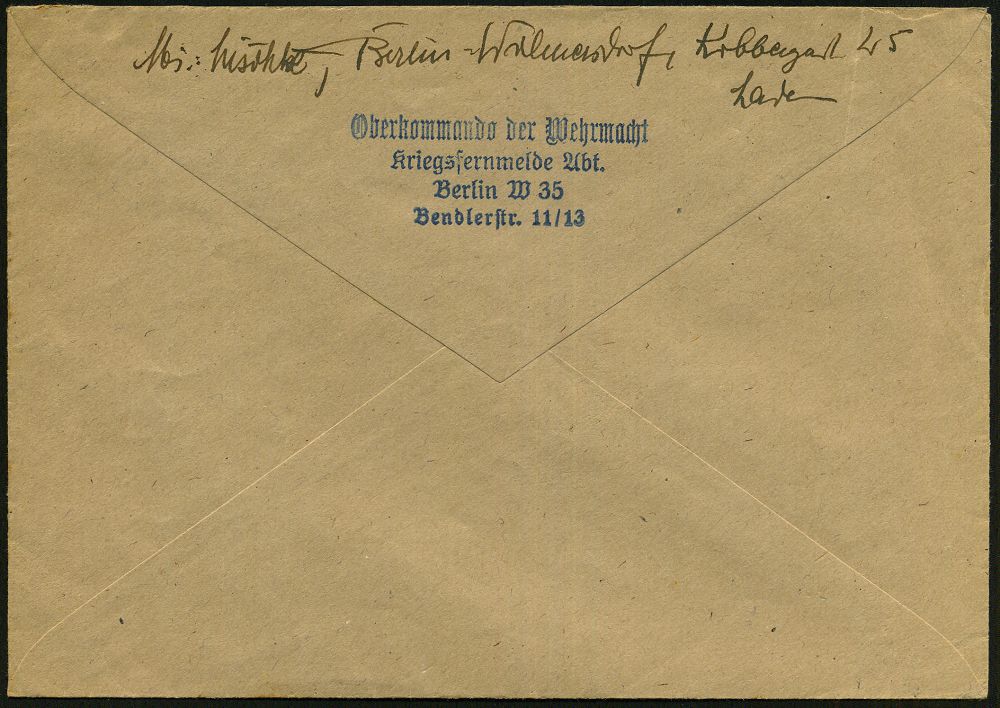 Berlin-Wilmersdorf, 45
Laden
Oberkommando der Wehrmacht
Kriegsfernmelde Abt.
Berlin W 35
Bendlerstr. 11/13